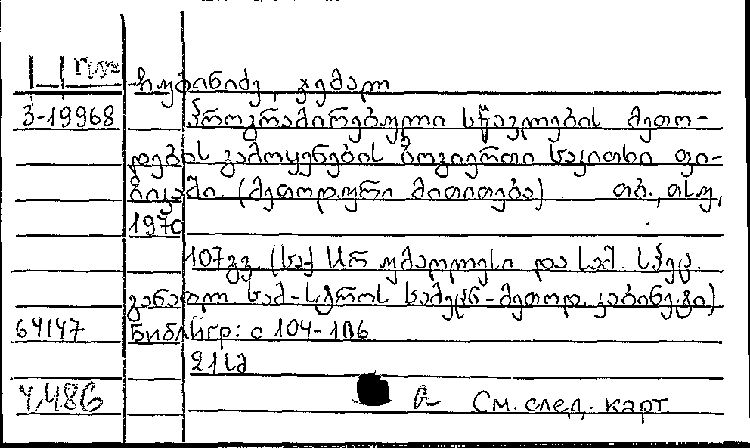 ჩუბინიძე, ჯემალ
3-19968 პროგრამირებული სწავლების მეთო-
დების გამოყენების ზოგიერთი საკითხი ფი-
ზიკაში. (მეთოდური მითითება) თბ., თსუ,
1970
107 გვ. (საქ. სსრ უმაღლესი და საშ. სპეც.
განათლ. სამ-სტროს სამეცნ-მეთოდ. კაბინეტი)
64147 Библиогр: с 104-106
21 სმ
7,486 а См. след. карт